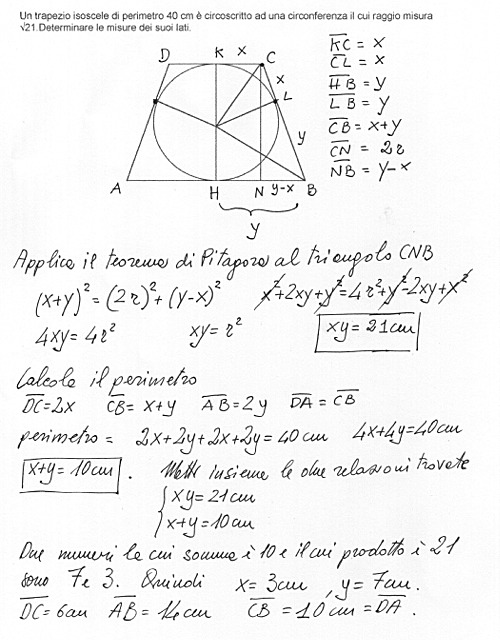 Un trapezio isoscele di perimetro 40 cm è circoscritto ad una circonferenza il cui raggio misura
√21.Determinare le misure dei suoi lati.
D K x C
x
L
y
A H N y-x B
y
K̅C̅ = x
C̅L̅ = x
H̅B̅ = y
L̅B̅ = y
C̅B̅ = x+y
C̅N̅ = 2r
N̅B̅ = y-x
Applico il teorema di Pitagora al triangolo CNB
(x+y)² = (2r)² + (y-x)² x²+2xy+y²=4r²+y²-2xy+x²
4xy = 4r² xy = r² xy = 21cm
Calcolo il perimetro
D̅C̅=2x C̅B̅ = x+y A̅B̅=2y D̅A̅ = C̅B̅
perimetro = 2x+2y+2x+2y=40cm 4x+4y=40cm
x+y=10cm . Metto insieme le due relazioni trovate
{xy=21cm
{x+y=10cm
Due numeri la cui somma è 10 e il cui prodotto è 21
sono 7 e 3. Quindi x=3cm , y=7cm.
D̅C̅=6cm A̅B̅=14cm C̅B̅=10cm=D̅A̅.